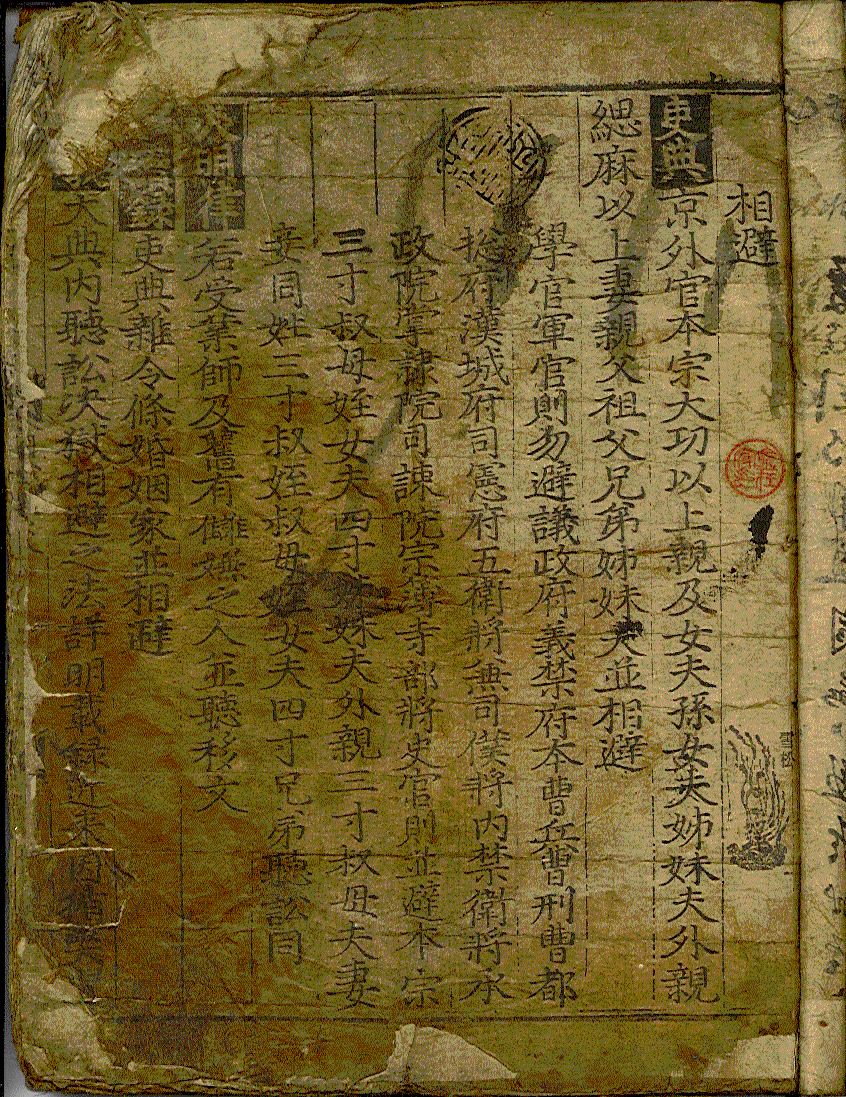 相避
吏典 京外官本宗大功以上親及女夫孫女夫姊妹夫外親
緦麻以上妻親父祖父兄弟姊妹夫並相避
學官軍官則勿避議政府義禁府本曹兵曹刑曹都
摠府漢城府司憲府五衛將兼司僕將內禁衛將承
政院掌隷院司諫院宗簿寺部將史官則並避本宗
三寸叔母姪女夫四寸妹夫外親三寸叔母夫妻
妾同姓三寸叔姪叔母姪女夫四寸兄弟聽訟同
大明律 若受業師及舊有讎嫌之人並聽移文
錄 吏典雜令條婚姻家並相避
大典內聽訟決獄相避之法詳明載錄近來
雪松